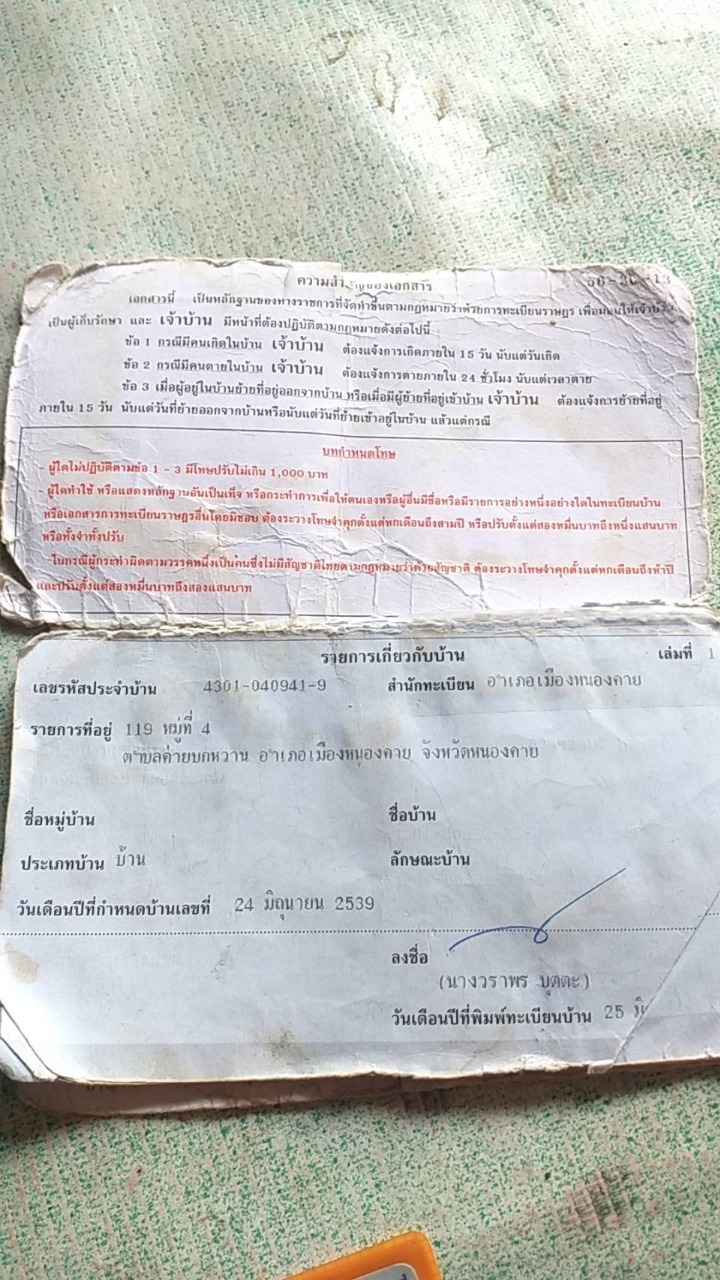 ความสำคัญของเอกสาร
เอกสารนี้ เป็นหลักฐานของทางราชการที่จัดทำขึ้นตามกฎหมายว่าด้วยการทะเบียนราษฎร เพื่อมอบให้เจ้าบ้าน
เป็นผู้เก็บรักษา และ เจ้าบ้าน มีหน้าที่ต้องปฏิบัติตามกฎหมายดังต่อไปนี้
ข้อ 1 กรณีมีคนเกิดในบ้าน เจ้าบ้าน ต้องแจ้งการเกิดภายใน 15 วัน นับแต่วันเกิด
ข้อ 2 กรณีมีคนตายในบ้าน เจ้าบ้าน ต้องแจ้งการตายภายใน 24 ชั่วโมง นับแต่เวลาตาย
ข้อ 3 เมื่อผู้อยู่ในบ้านย้ายที่อยู่ออกจากบ้าน หรือเมื่อมีผู้ย้ายที่อยู่เข้าบ้าน เจ้าบ้าน ต้องแจ้งการย้ายที่อยู่
ภายใน 15 วัน นับแต่วันที่ย้ายออกจากบ้านหรือนับแต่วันที่ย้ายเข้าอยู่ในบ้าน แล้วแต่กรณี
บทกำหนดโทษ
- ผู้ใดไม่ปฏิบัติตามข้อ 1 - 3 มีโทษปรับไม่เกิน 1,000 บาท
- ผู้ใดทำ ใช้ หรือแสดงหลักฐานอันเป็นเท็จ หรือกระทำการเพื่อให้ตนเองหรือผู้อื่นมีชื่อหรือมีรายการอย่างหนึ่งอย่างใดในทะเบียนบ้าน
หรือเอกสารการทะเบียนราษฎรอื่นโดยมิชอบ ต้องระวางโทษจำคุกตั้งแต่หกเดือนถึงสามปี หรือปรับตั้งแต่สองหมื่นบาทถึงหนึ่งแสนบาท
หรือทั้งจำทั้งปรับ
ในกรณีผู้กระทำผิดตามวรรคหนึ่งเป็นคนซึ่งไม่มีสัญชาติไทยตามกฎหมายว่าด้วยสัญชาติ ต้องระวางโทษจำคุกตั้งแต่หกเดือนถึงห้าปี
และปรับตั้งแต่สองหมื่นบาทถึงสองแสนบาท
รายการเกี่ยวกับบ้าน เล่มที่ 1
เลขรหัสประจำบ้าน 4301-040941-9 สำนักทะเบียน อำเภอเมืองหนองคาย
รายการที่อยู่ 119 หมู่ที่ 4
ตำบลค่ายบกหวาน อำเภอเมืองหนองคาย จังหวัดหนองคาย
ชื่อหมู่บ้าน ชื่อบ้าน
ประเภทบ้าน บ้าน ลักษณะบ้าน
วันเดือนปีที่กำหนดบ้านเลขที่ 24 มิถุนายน 2539
ลงชื่อ
(นางวราพร บุตตะ)
วันเดือนปีที่พิมพ์ทะเบียนบ้าน 25